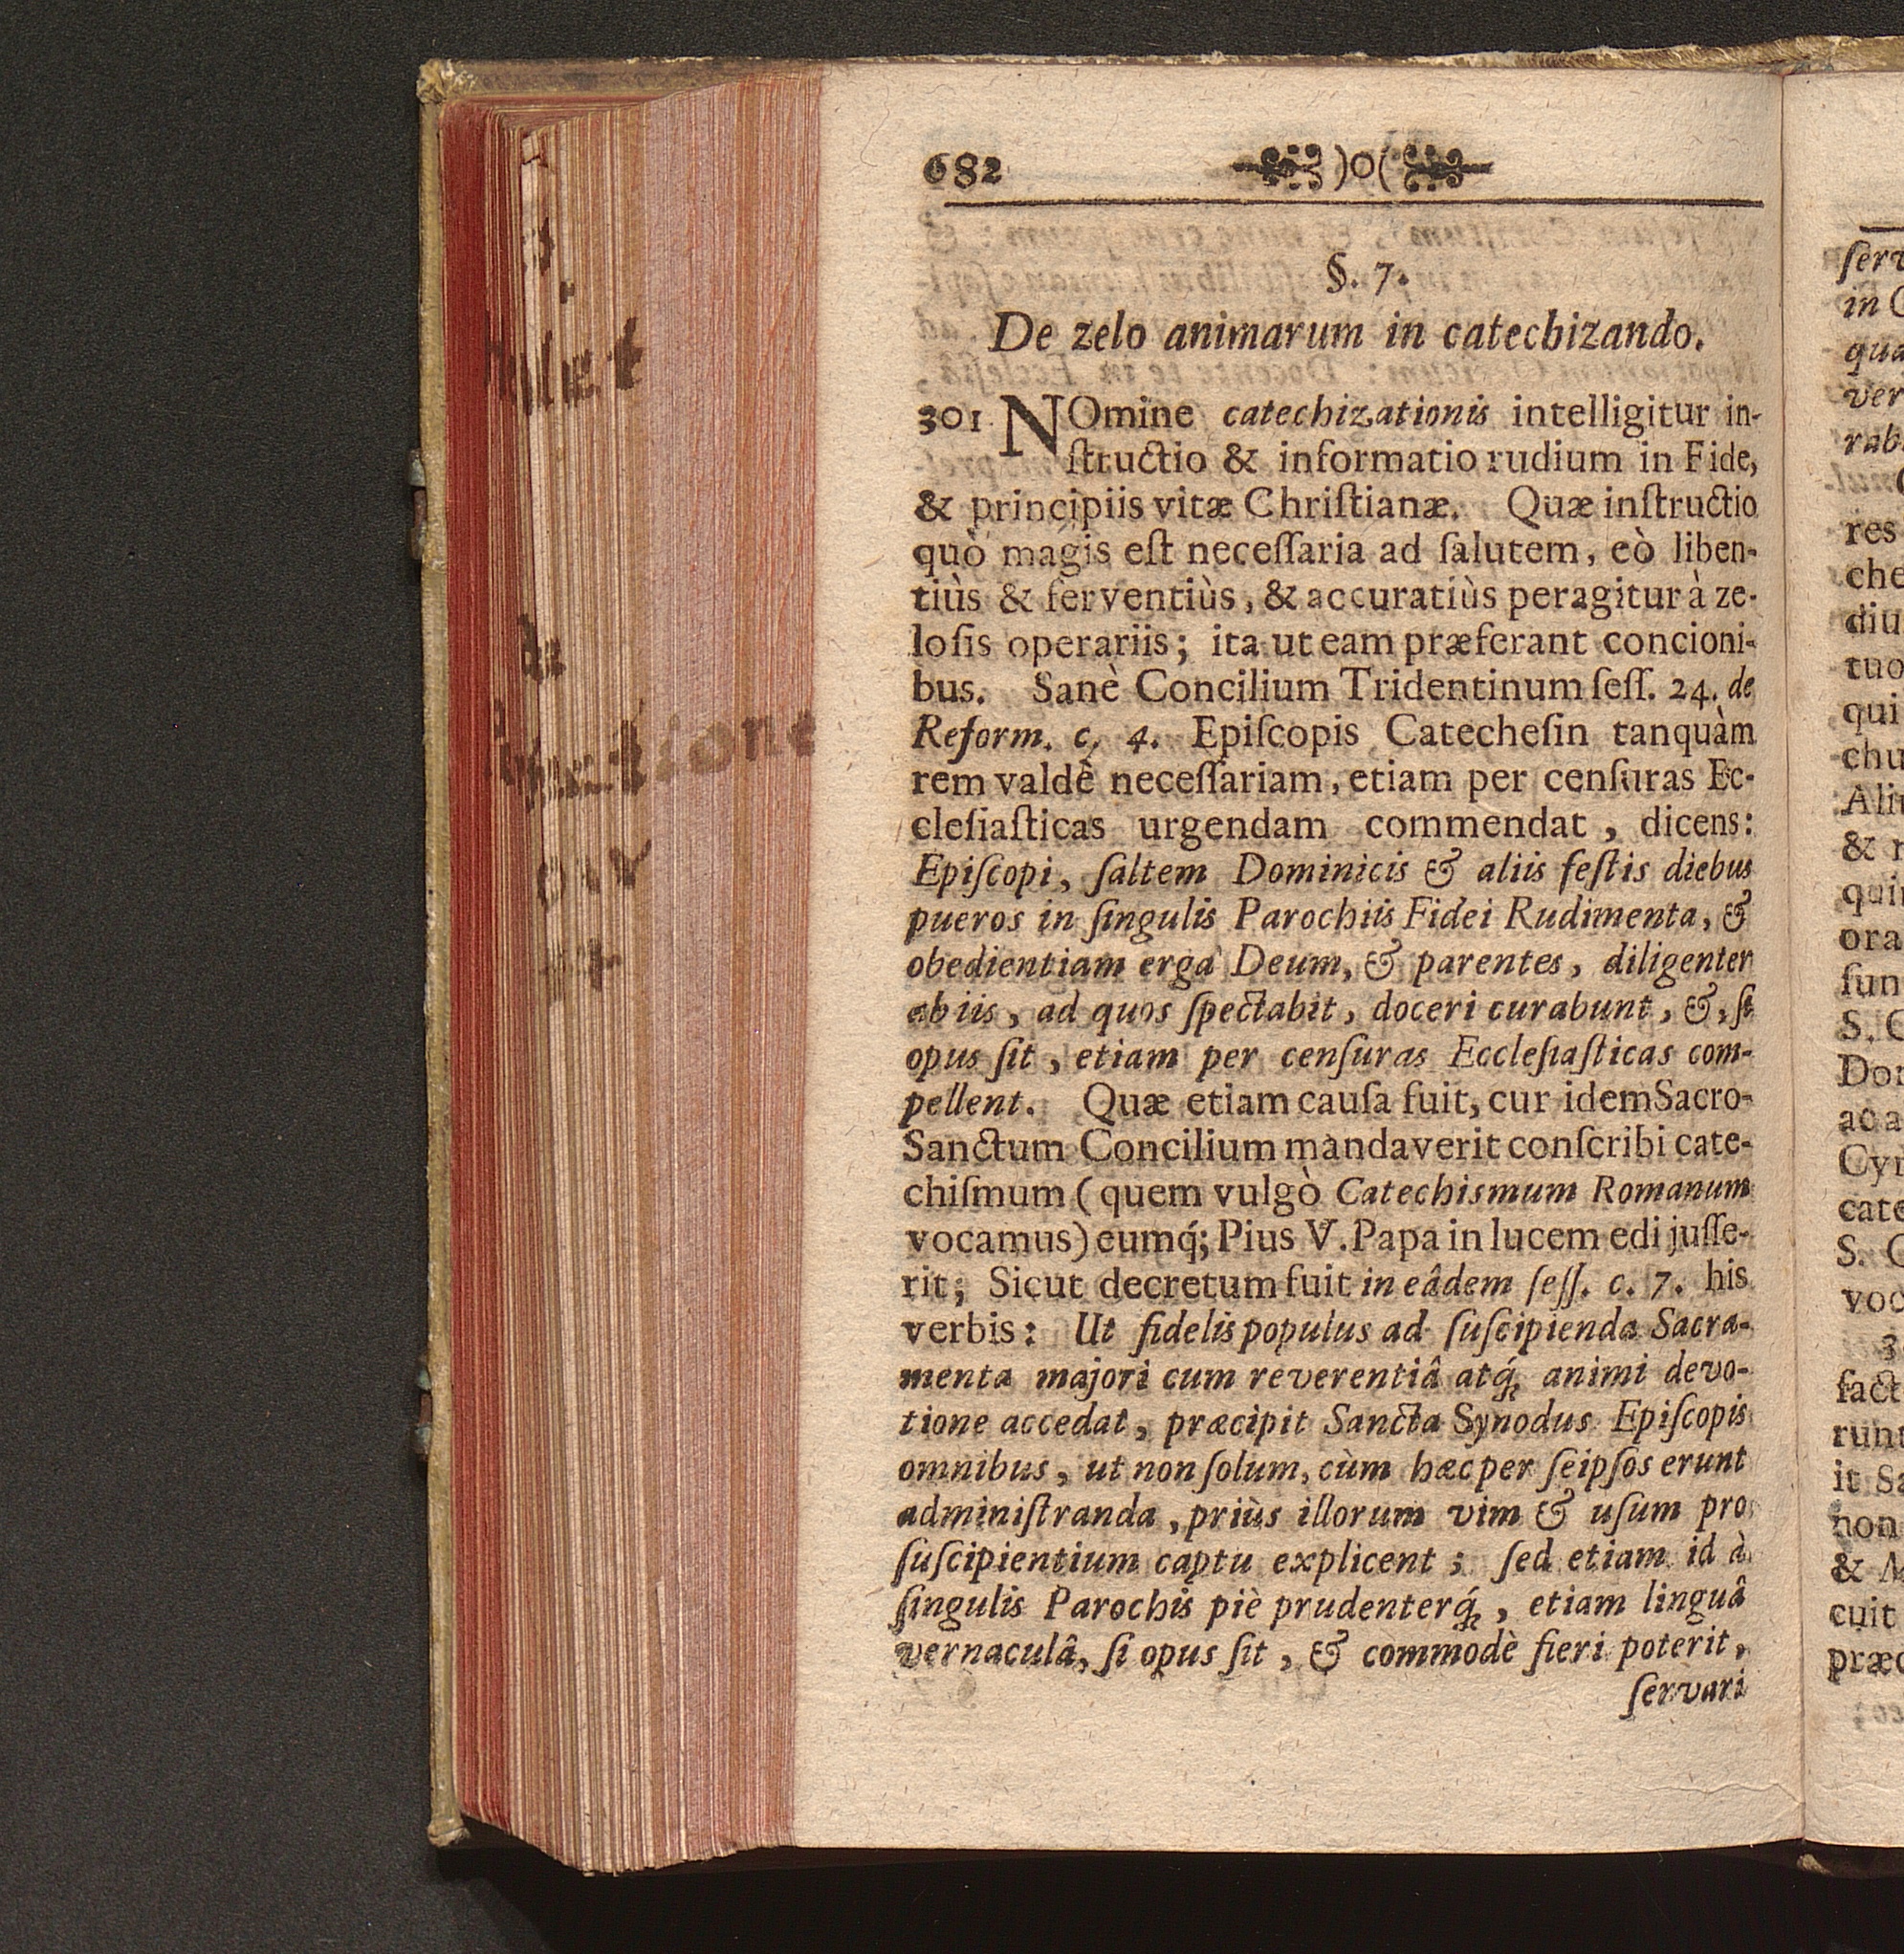 682 )o(
§. 7.
De zelo animarum in catechizando.
301 NOmine catechizationis intelligitur in-
ſtructio & informatio rudium in Fide,
& principiis vitæ Chriſtianæ. Quæ inſtructio
quò magis eſt neceſſaria ad ſalutem, eò liben-
tiùs & ferventiùs, & accuratiùs peragitur à ze-
loſis operariis; ita ut eam præferant concioni-
bus. Sanè Concilium Tridentinum ſeſſ. 24. de
Reform. c. 4. Epiſcopis Catecheſin tanquàm
rem valdè neceſſariam, etiam per cenſuras Ec-
cleſiaſticas urgendam commendat, dicens:
Epiſcopi, ſaltem Dominicis & aliis feſtis diebus
pueros in ſingulis Parochiis Fidei Rudimenta, &
obedientiam erga Deum, & parentes, diligenter
ab iis, ad quos ſpectabit, doceri curabunt, &, ſi
opus ſit, etiam per cenſuras Eccleſiaſticas com-
pellent. Quæ etiam cauſa fuit, cur idem Sacro-
Sanctum Concilium mandaverit conſcribi cate-
chiſmum (quem vulgò Catechismum Romanum
vocamus) eumq́; Pius V. Papa in lucem edi juſſe-
rit; Sicut decretum fuit in eâdem ſeſſ. c. 7. his
verbis: Ut fidelis populus ad ſuſcipienda Sacra-
menta majori cum reverentiâ atq́; animi devo-
tione accedat, præcipit Sancta Synodus Epiſcopis
omnibus, ut non ſolum, cùm hæc per ſeipſos erunt
adminiſtranda, priùs illorum vim & uſum pro
ſuſcipientium captu explicent; ſed etiam id à
ſingulis Parochis piè prudenterq́;, etiam linguâ
vernaculâ, ſi opus ſit, & commodè fieri poterit,
ſervari